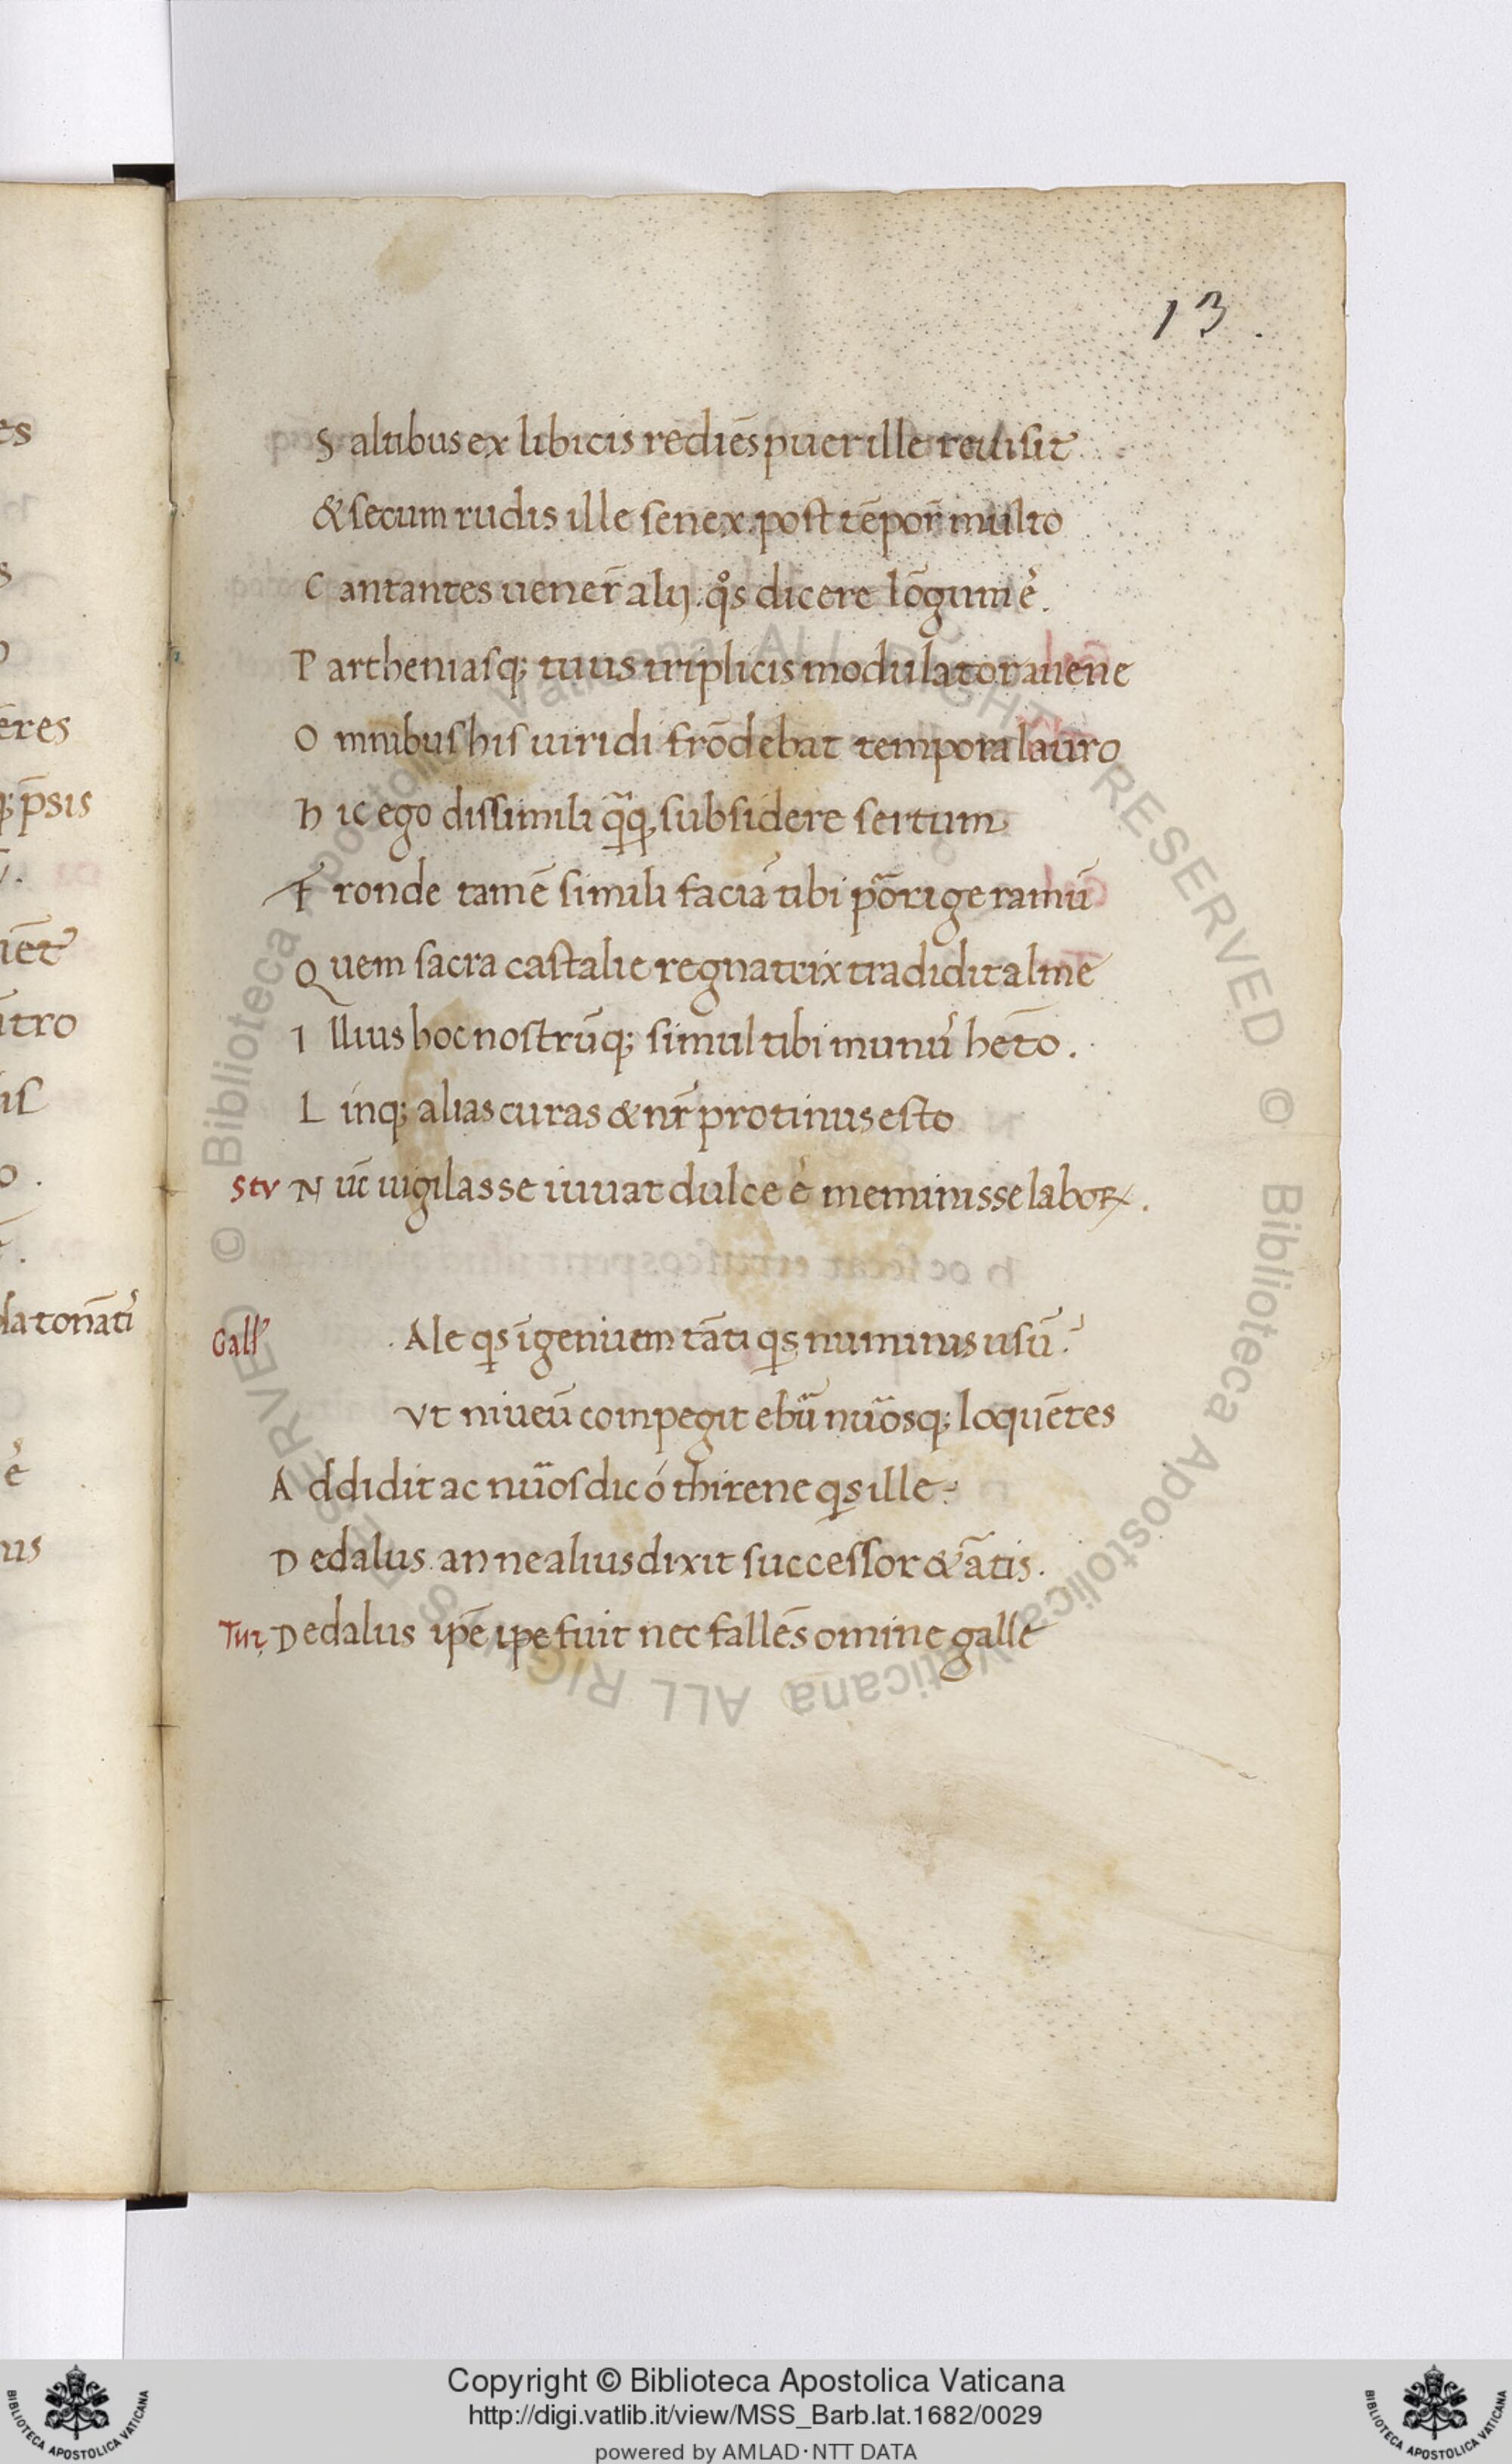 13.
S altibus ex libicis rediēs puer ille reuisit
& secum rudis ille senex. post tēpor̄ multo
C antantes uener̄ alij. qͦs dicere lōgum ē.
P artheniasq; tuus triplicis modulator auene
O mnibus his uiridi frōdebat tempora lauro
h ic ego dissimili qͣqͣ subsidere sertum
F ronde tamē simili faciā tibi porͣrige ramū
Q uem sacra castalie regnatrix tradidit alme
I llius hoc nostrūq; simul tibi munu᾽ heto.
L inq; alias curas & nr̄ protinus esto
Stv N uc̄ uigilasse iuuat dulce ē meminisse laboꝝ.
Gall᾽ Ale qis īgenium tāti qis numinis usū?
vt niueū compegit ebuͣ nuͦosq; loquētes
A ddidit ac nuͦos dic ó thirene qis ille?
D edalus. an ne alius dixit successor & ātis.
Tur. D edalus ipē ipe fuit nec fallēs omine galle
Copyright © Biblioteca Apostolica Vaticana
http://digi.vatlib.it/view/MSS_Barb.lat.1682/0029
powered by AMLAD·NTT DATA